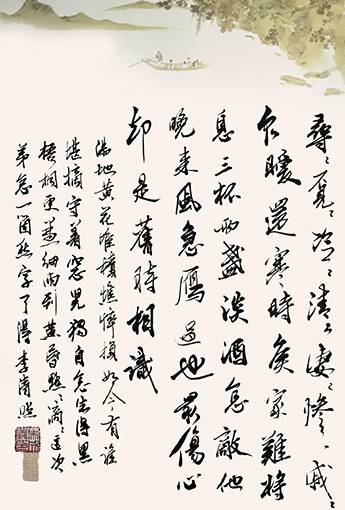 尋〻覓〻冷〻清〻淒〻慘〻戚〻
乍暖還寒時候最難將
息三杯兩盞淡酒怎敵他
晚來風急鴈過也最傷心
却是舊時相識
滿地黃花堆積憔悴損如今有誰
堪摘守着窗兒獨自怎生得黑
梧桐更兼細雨到黃昏點〻滴〻這次
第怎一箇愁字了得李清照